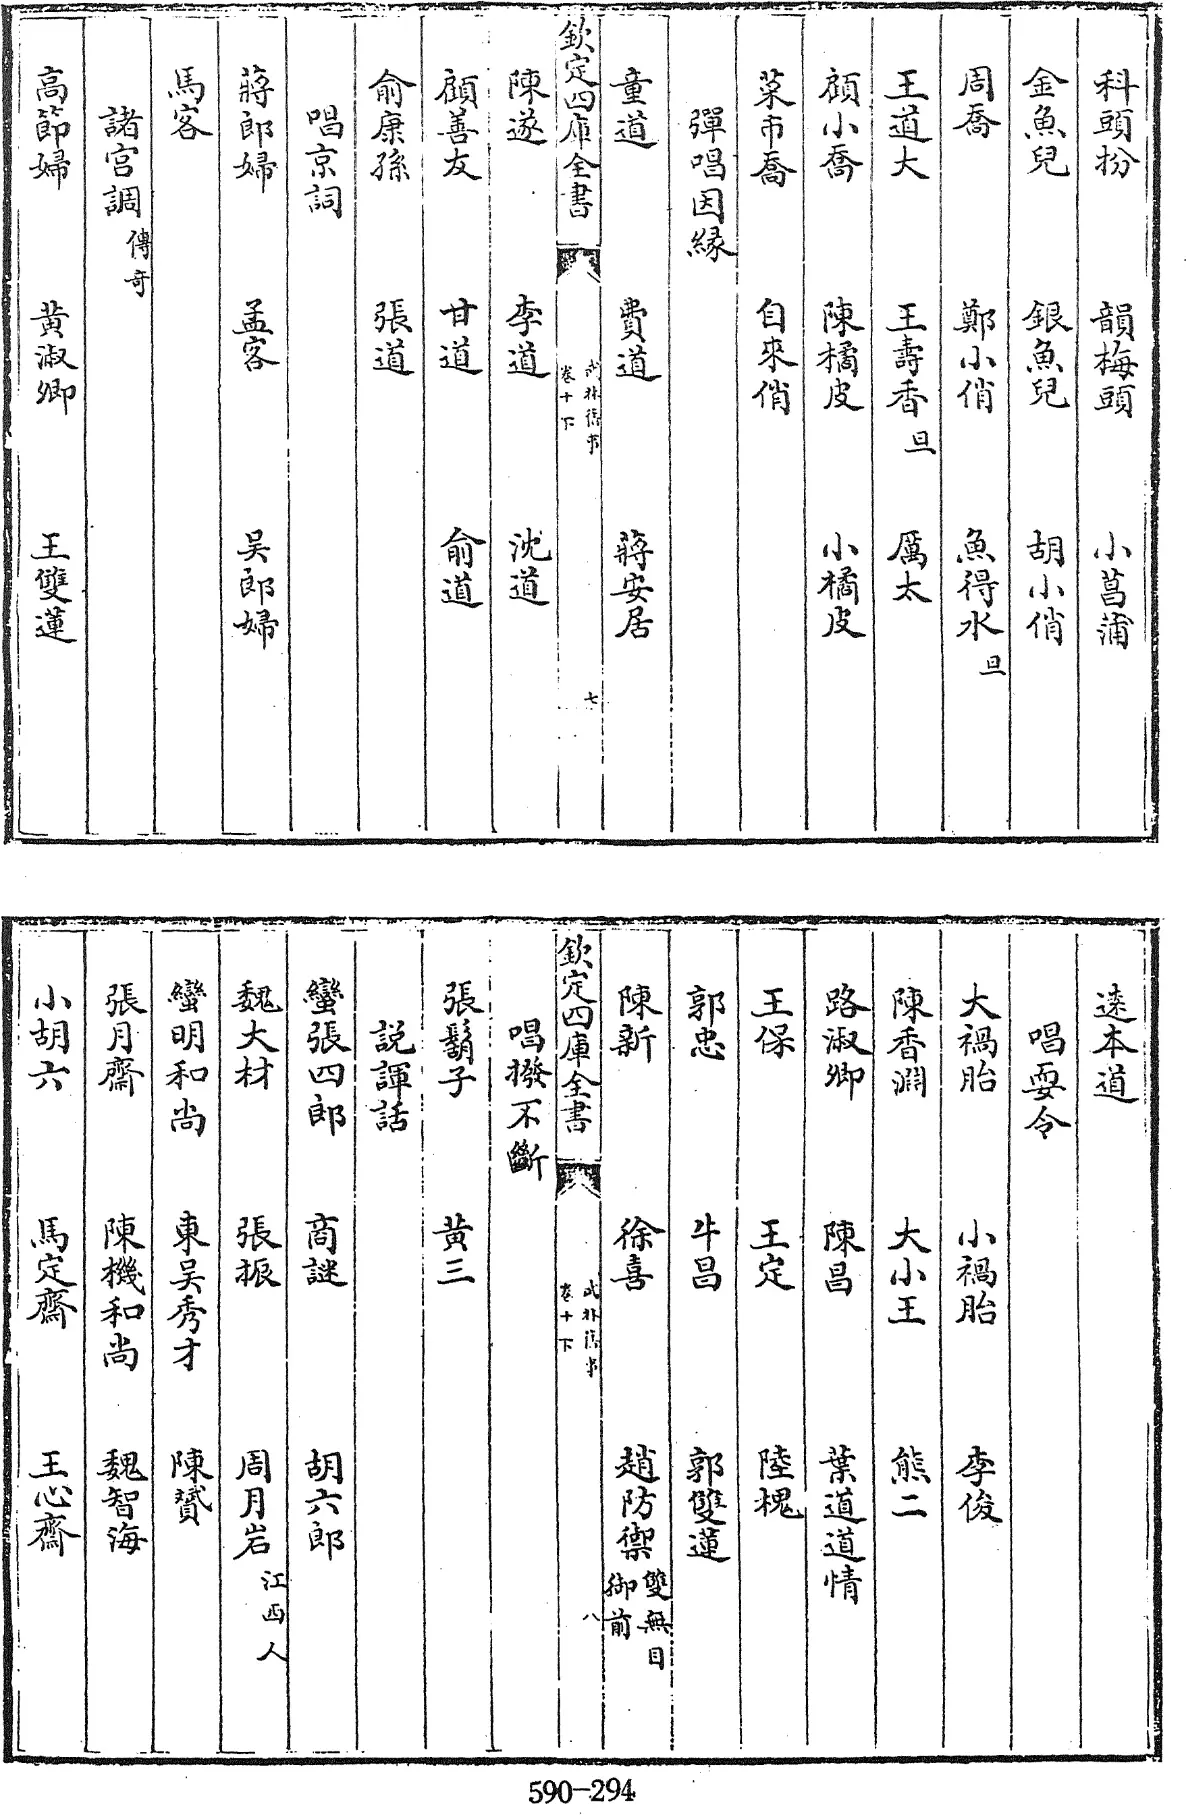 科頭扮 韻梅頭 小菖蒲
金魚兒 銀魚兒 胡小俏
周喬 鄭小俏 魚得水旦
王道大 王壽香旦 厲太
顧小喬 陳橘皮 小橘皮
菜市喬 自來俏
彈唱因緣
童道 費道 蔣安居
欽定四庫全書 武林舊事 卷十下 七
陳遂 李道 沈道
顧善友 甘道 俞道
俞康孫 張道
唱京詞
蔣郎婦 孟客 吴郎婦
馬客
諸宫調傳奇
高節婦 黄淑卿 王雙蓮
逺本道
唱耍令
大禍胎 小禍胎 李俊
陳香淵 大小王 熊二
路淑卿 陳昌 葉道道情
王保 王定 陸槐
郭忠 牛昌 郭雙蓮
陳新 徐喜 趙防禦雙無目御前
欽定四庫全書 武林舊事 卷十下 八
唱撥不斷
張鬍子 黄三
説諢話
蠻張四郎 商謎 胡六郎
魏大材 張振 周月岩江西人
蠻明和尚 東吴秀才 陳贇
張月齋 陳機和尚 魏智海
小胡六 馬定齋 王心齋
590-294